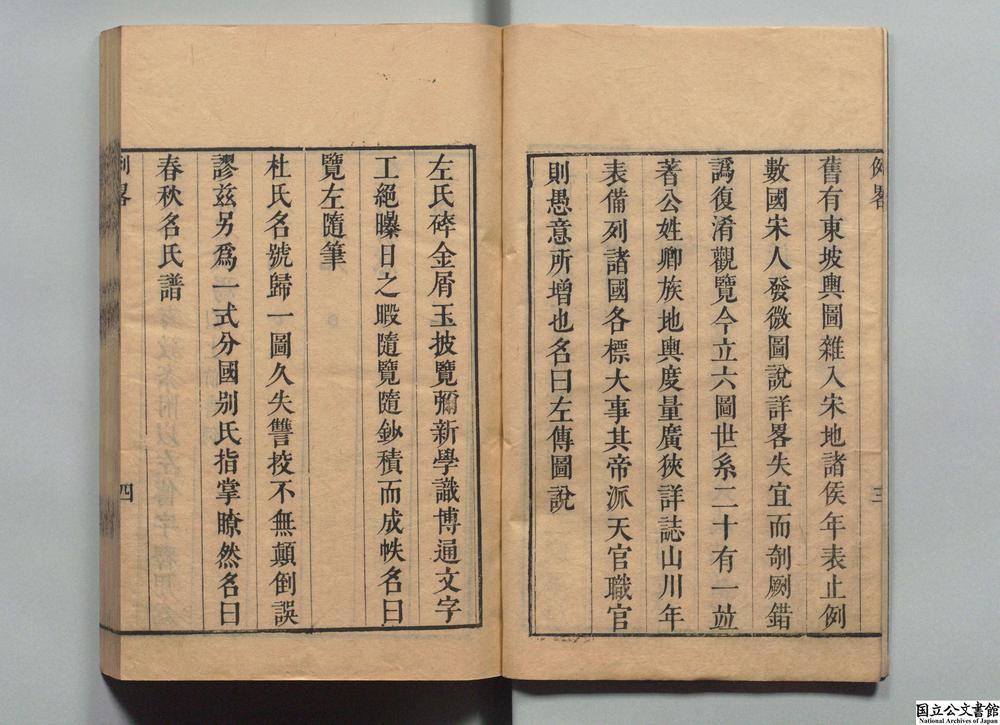 例畧
三
舊有東坡輿圖雜入宋地諸侯年表止例
數國宋人發微圖說詳畧失宜而剞劂錯
譌復淆觀覽今立六圖世系二十有一竝
著公姓卿族地輿度量廣狹詳誌山川年
表備列諸國各標大事其帝派天官職官
則愚意所增也名曰左傳圖說
左氏碎金屑玉披覽彌新學識博通文字
工絕曝日之暇隨覽隨鈔積而成帙名曰
覽左隨筆
杜氏名號歸一圖久失讐挍不無顛倒誤
謬茲另爲一式分國别氏指掌瞭然名曰
春秋名氏譜
例畧
四
国立公文書館
National Archives of Japan